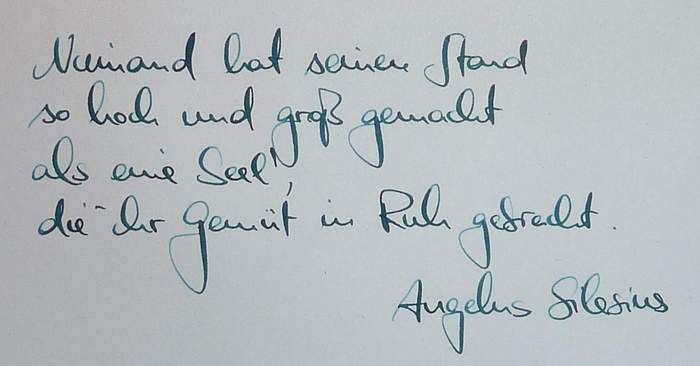 Niemand hat seinen Stand
so hoch und groß gemacht
als eine Seel',
die ihr Gemüt in Ruh gebracht.
Angelus Silesius